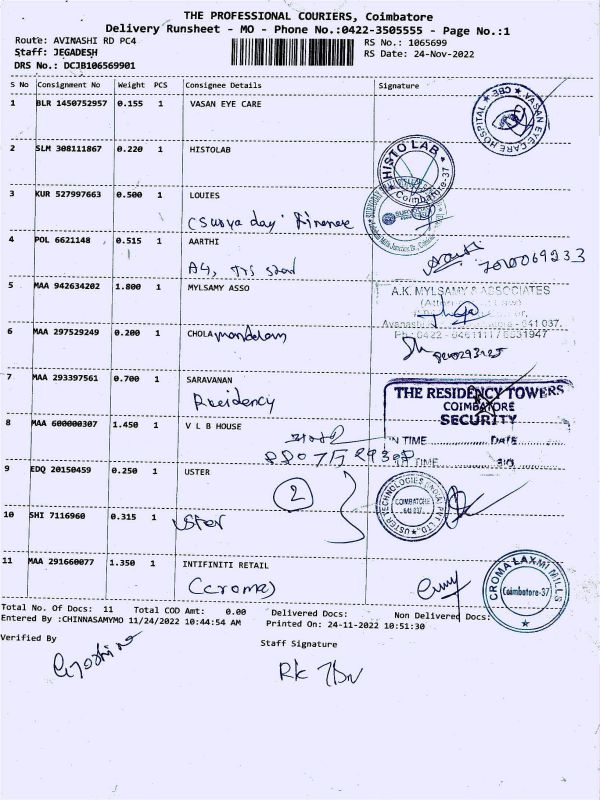 THE PROFESSIONAL COURIERS, Coimbatore
Delivery Runsheet - MO - Phone No.:0422-3505555 - Page No.:1
Route: AVINASHI RD PC4
RS No.: 1065699
Staff: JEGADESH
RS Date: 24-Nov-2022
DRS No.: DCJB106569901
S No Consignment No Weight PCS Consignee Details Signature
1 BLR 1450752957 0.155 1 VASAN EYE CARE
VASAN EYE CARE HOSPITAL CBE
2 SLM 308111867 0.220 1 HISTOLAB
HISTO LAB Coimbatore-37
3 KUR 527997663 0.500 1 LOUIES
(Surya day Finance
4 POL 6621148 0.515 1 AARTHI
Aarthi
5 MAA 942634202 1.800 1 MYLSAMY ASSO
A.K. MYLSAMY & ASSOCIATES
6 MAA 297529249 0.200 1 CHOLA mandalam
7 MAA 293397561 0.700 1 SARAVANAN
Residency
THE RESIDENCY TOWERS
COIMBATORE
SECURITY
8 MAA 600000307 1.450 1 V L B HOUSE
IN TIME DATE
9 EDQ 20150459 0.250 1 USTER
2
USTER TECHNOLOGIES (INDIA) PVT LTD. COIMBATORE 641 037
10 SHI 7116960 0.315 1 USTER
11 MAA 291660077 1.350 1 INTIFINITI RETAIL
(croma)
CROMA LAXMI MILLS Coimbatore-37
Total No. Of Docs: 11 Total COD Amt: 0.00 Delivered Docs: Non Delivered Docs:
Entered By :CHINNASAMYMO 11/24/2022 10:44:54 AM Printed On: 24-11-2022 10:51:30
Verified By
Staff Signature